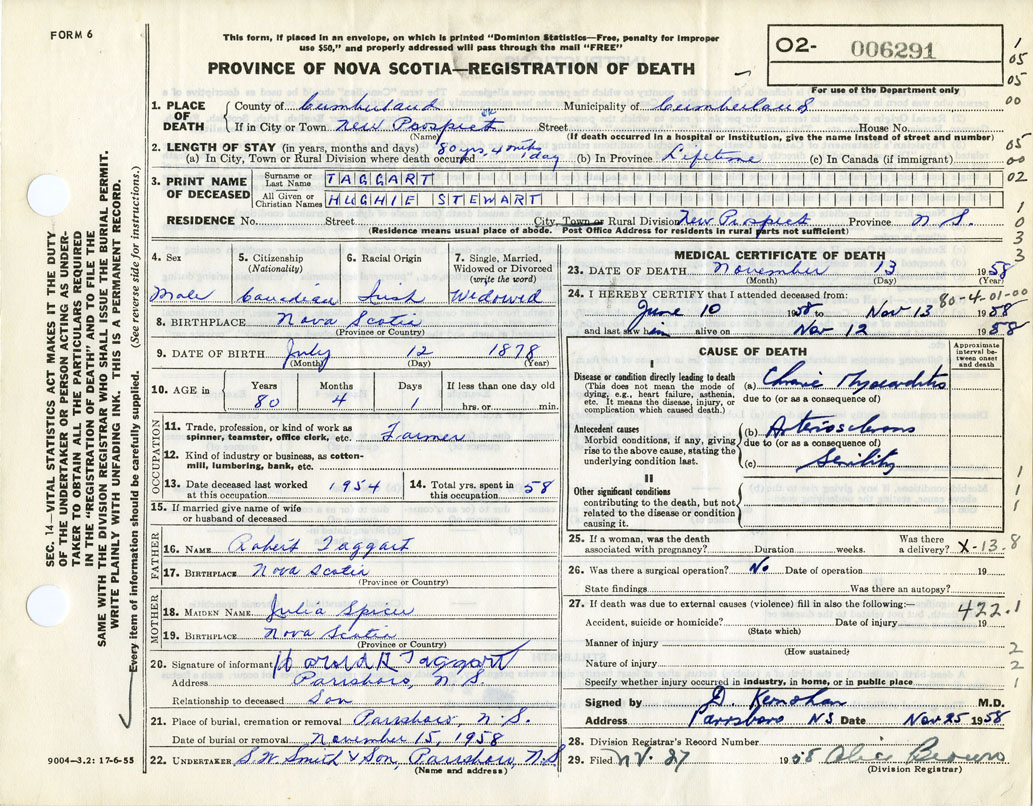 FORM 6
This form, if placed in an envelope, on which is printed "Dominion Statistics—Free, penalty for improper
use $50," and properly addressed will pass through the mail "FREE"
PROVINCE OF NOVA SCOTIA—REGISTRATION OF DEATH
O2- 006291
For use of the Department only
1
05
05
00
05
00
02
1
0
3
3
1. PLACE OF DEATH { County of Cumberland Municipality of Cumberland
If in City or Town New Prospect Street House No.
(Name) (If death occurred in a hospital or institution, give the name instead of street and number)
2. LENGTH OF STAY (in years, months and days) 80 yrs, 4 mths
(a) In City, Town or Rural Division where death occurred 1 day (b) In Province Lifetime (c) In Canada (if immigrant)
3. PRINT NAME OF DECEASED { Surname or Last Name TAGGART
All Given or Christian Names HUGHIE STEWART
RESIDENCE No. Street City, Town or Rural Division New Prospect Province N.S.
(Residence means usual place of abode. Post Office Address for residents in rural parts not sufficient)
4. Sex 5. Citizenship (Nationality) 6. Racial Origin 7. Single, Married, Widowed or Divorced (write the word)
Male Canadian Irish Widowed
8. BIRTHPLACE Nova Scotia
(Province or Country)
9. DATE OF BIRTH July 12 1878
(Month) (Day) (Year)
10. AGE in Years Months Days If less than one day old
80 4 1 hrs. or min.
OCCUPATION
11. Trade, profession, or kind of work as
spinner, teamster, office clerk, etc. Farmer
12. Kind of industry or business, as cotton-
mill, lumbering, bank, etc.
13. Date deceased last worked at this occupation 1954 14. Total yrs. spent in this occupation 58
15. If married give name of wife
or husband of deceased
FATHER
16. NAME Robert Taggart
17. BIRTHPLACE Nova Scotia
(Province or Country)
MOTHER
18. MAIDEN NAME Julia Spicer
19. BIRTHPLACE Nova Scotia
(Province or Country)
20. Signature of informant Harold H Taggart
Address Parrsboro, N.S.
Relationship to deceased Son
21. Place of burial, cremation or removal Parrsboro, N.S.
Date of burial or removal November 15, 1958
22. UNDERTAKER S.W. Smith & Son, Parrsboro, N.S
(Name and address)
MEDICAL CERTIFICATE OF DEATH
23. DATE OF DEATH November 13 1958
(Month) (Day) (Year)
80-4-01-00
24. I HEREBY CERTIFY that I attended deceased from:
June 10 1958 to Nov 13 1958
and last saw him alive on Nov 12 1958
CAUSE OF DEATH
Approximate interval between onset and death
I
Disease or condition directly leading to death
(This does not mean the mode of
dying, e.g., heart failure, asthenia,
etc. It means the disease, injury, or
complication which caused death.)
(a) Chronic Myocarditis
due to (or as a consequence of)
Antecedent causes
Morbid conditions, if any, giving
rise to the above cause, stating the
underlying condition last.
(b) Arteriosclerosis
due to (or as a consequence of)
(c) Senility
II
Other significant conditions
contributing to the death, but not
related to the disease or condition
causing it.
1
1
1
25. If a woman, was the death
associated with pregnancy? Duration weeks. Was there a delivery? X-13.8
26. Was there a surgical operation? No Date of operation 19
State findings Was there an autopsy?
27. If death was due to external causes (violence) fill in also the following:— 422.1
Accident, suicide or homicide? Date of injury 19
(State which)
Manner of injury 2
(How sustained)
Nature of injury 2
Specify whether injury occurred in industry, in home, or in public place 1
Signed by D. Kernohan M.D.
Address Parrsboro NS Date Nov 25 1958
28. Division Registrar's Record Number
29. Filed Nv. 27 1958 Alice Brown
(Division Registrar)
SEC. 14—VITAL STATISTICS ACT MAKES IT THE DUTY
OF THE UNDERTAKER OR PERSON ACTING AS UNDER-
TAKER TO OBTAIN ALL THE PARTICULARS REQUIRED
IN THE "REGISTRATION OF DEATH" AND TO FILE THE
SAME WITH THE DIVISION REGISTRAR WHO SHALL ISSUE THE BURIAL PERMIT.
WRITE PLAINLY WITH UNFADING INK. THIS IS A PERMANENT RECORD.
Every item of information should be carefully supplied. (See reverse side for instructions.)
9004—3.2: 17-6-55